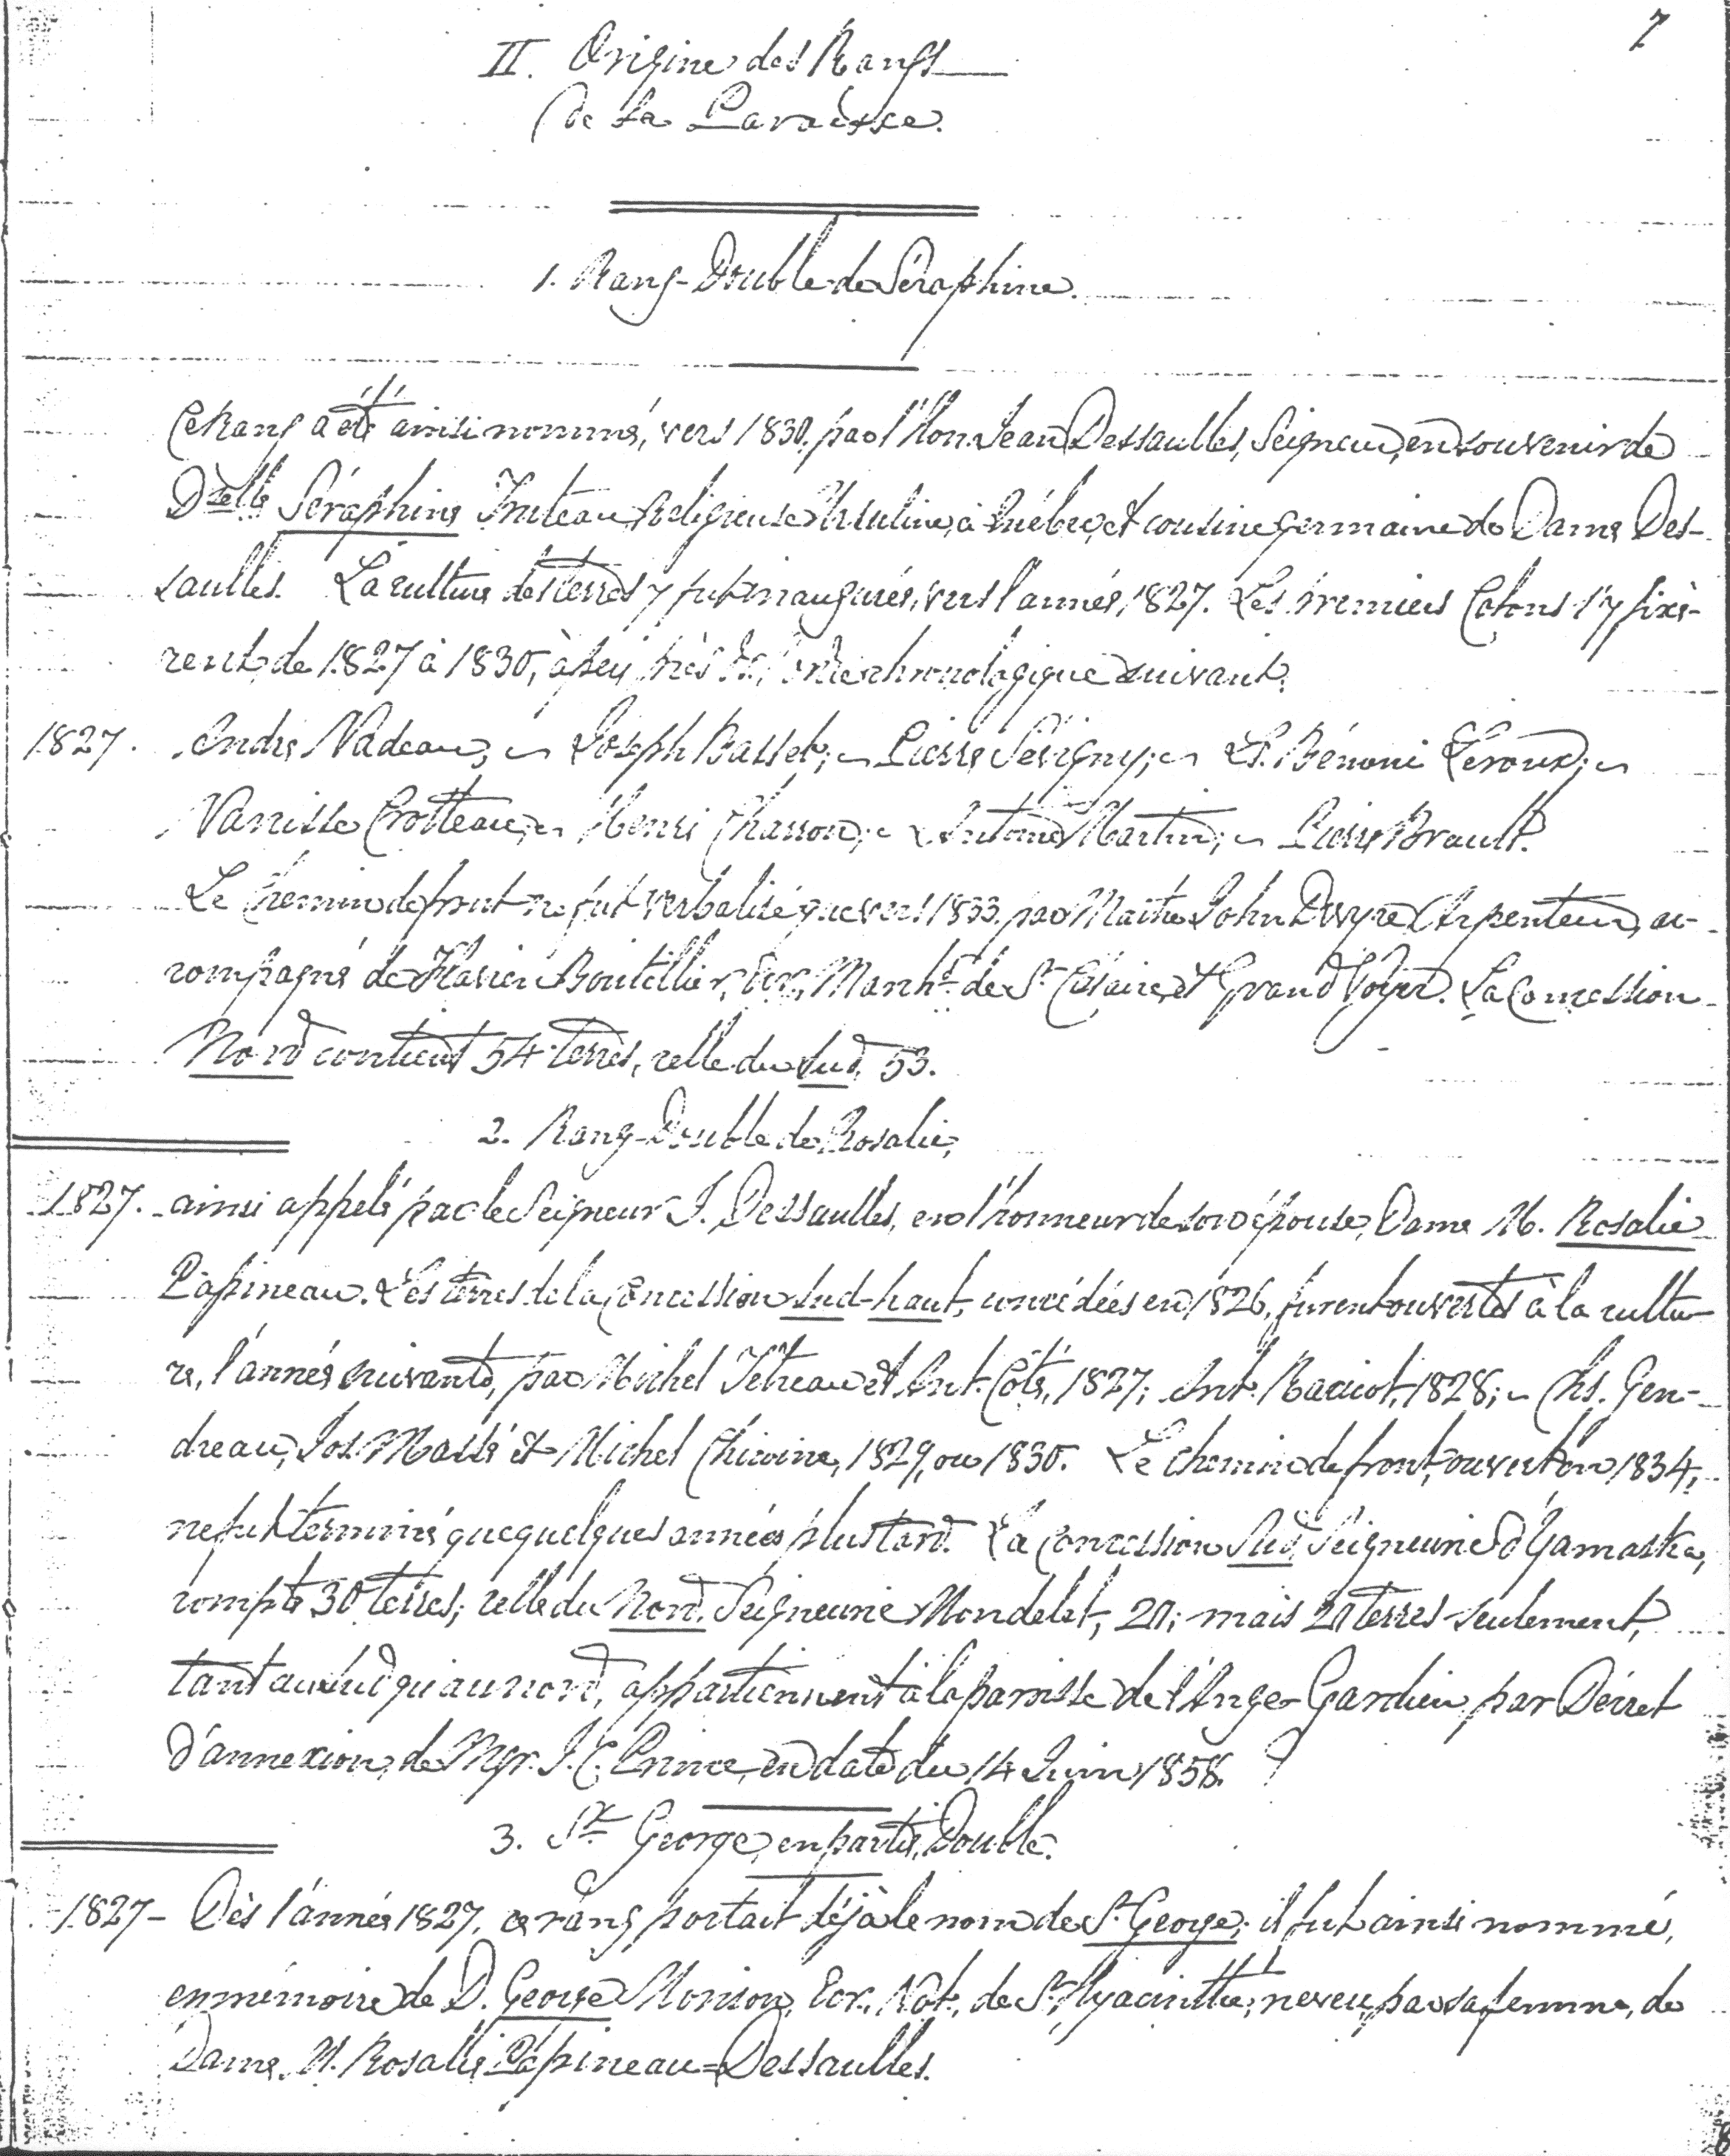 7
II. Origine des Rangs
de la Paroisse.
1. Rang-Double de Séraphine.
Ce Rang a été ainsi nommé, vers 1830. par l'Hon. Jean Dessaulles, Seigneur, en souvenir de
Dzelle Séraphine Truteau, Religieuse Ursuline, à Québec, et cousine germaine de Dame Des-
saulles. La culture des terres y fut inaugurée, vers l'année, 1827. Les premiers Colons s'y fixè-
rent, de 1827 à 1830, à peu près dans l'ordre chronologique suivant.
1827. André Nadeau, ~ Joseph Basset; ~ Pierre Sévigny; ~ Ls. Bénoni Léroux; ~
Vanisse Crotteau; ~ Henri Chasson; ~ Antoine Martin; ~ Pierre Brault.
Le Chemin de front ne fut verbalisé que vers 1833. par Maitre John Dwyre Arpenteur, ac-
compagné de Flavien Boutillier, Ecr., Marchd. de St Césaire, et Grand Voyer. La Concession
Nord contient 54 terres, celle du Sud, 53.
2. Rang-Double de Rosalie,
1827. ainsi appelé par le Seigneur J. Dessaulles, en l'honneur de son épouse, Dame M. Rosalie
Papineau. Les terres de la Concession Sud-haut, concédées en 1826, furent ouvertes à la cultu-
re, l'année suivante, par Michel Tétreau et Ant. Côté, 1827; Ant. Racicot, 1828; ~ Chs. Gen-
dreau, Jos. Massé et Michel Chicoine, 1829, ou 1830. Le chemin de front, ouvert en 1834,
ne fut terminé que quelques années plus tard. La Concession Sud, Seigneurie d'Yamaska,
compte 30 terres; celle du Nord. Seigneurie Mondelet, 20; mais 20 terres seulement,
tant au Sud qu'au nord, appartiennent à la paroisse de l'Ange-Gardien, par Décret
d'annexion, de Mgr. J. C. Prince, en date du 14 Juin 1858. ?
3. St George, en partie, Double.
1827- Dès l'année 1827, ce rang portait déjà le nom de St George; il fut ainsi nommé,
en mémoire de D. George Morison, Ecr., Not., de St Hyacinthe, neveu, par sa femme, de
Dame M. Rosalie Papineau=Dessaulles.